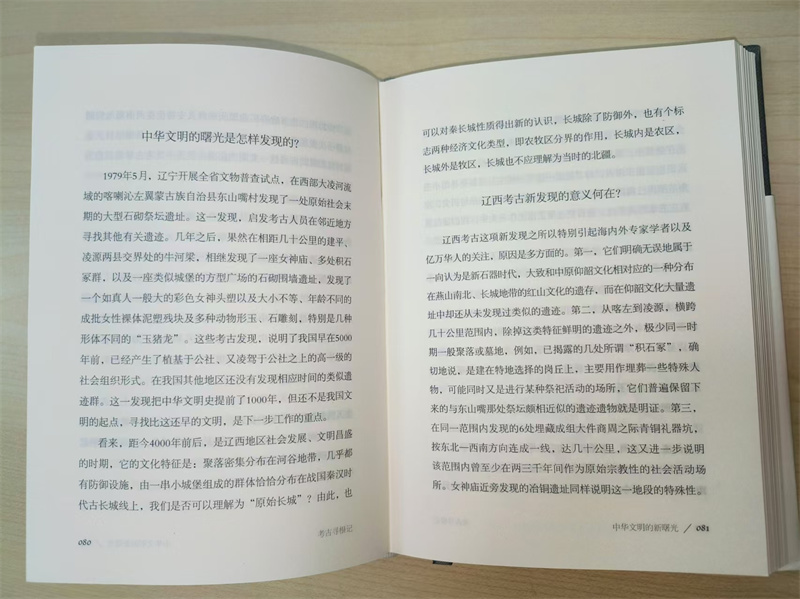 中华文明的曙光是怎样发现的?
1979年5月，辽宁开展全省文物普查试点，在西部大凌河流
域的喀喇沁左翼蒙古族自治县东山嘴村发现了一处原始社会末
期的大型石砌祭坛遗址。这一发现，启发考古人员在邻近地方
寻找其他有关遗迹。几年之后，果然在相距几十公里的建平、
凌源两县交界处的牛河梁，相继发现了一座女神庙、多处积石
冢群，以及一座类似城堡的方型广场的石砌围墙遗址，发现了
一个如真人一般大的彩色女神头塑以及大小不等、年龄不同的
成批女性裸体泥塑残块及多种动物形玉、石雕刻，特别是几种
形体不同的“玉猪龙”。这些考古发现，说明了我国早在5000
年前，已经产生了植基于公社、又凌驾于公社之上的高一级的
社会组织形式。在我国其他地区还没有发现相应时间的类似遗
迹群。这一发现把中华文明史提前了1000年，但还不是我国文
明的起点，寻找比这还早的文明，是下一步工作的重点。
看来，距今4000年前后，是辽西地区社会发展、文明昌盛
的时期，它的文化特征是：聚落密集分布在河谷地带，几乎都
有防御设施，由一串小城堡组成的群体恰恰分布在战国秦汉时
代古长城线上，我们是否可以理解为“原始长城”？由此，也
080
考古寻根记
可以对秦长城性质得出新的认识，长城除了防御外，也有个标
志两种经济文化类型，即农牧区分界的作用，长城内是农区，
长城外是牧区，长城也不应理解为当时的北疆。
辽西考古新发现的意义何在?
辽西考古这项新发现之所以特别引起海内外专家学者以及
亿万华人的关注，原因是多方面的。第一，它们明确无误地属于
一向认为是新石器时代，大致和中原仰韶文化相对应的一种分布
在燕山南北、长城地带的红山文化的遗存，而在仰韶文化大量遗
址中却还从未发现过类似的遗迹。第二，从喀左到凌源，横跨
几十公里范围内，除掉这类特征鲜明的遗迹之外，极少同一时
期一般聚落或墓地，例如，已揭露的几处所谓“积石冢”，确
切地说，是建在特地选择的岗丘上，主要用作埋葬一些特殊人
物，可能同时又是进行某种祭祀活动的场所，它们普遍保留下
来的与东山嘴那处祭坛颇相近似的遗迹遗物就是明证。第三，
在同一范围内发现的6处埋藏成组大件商周之际青铜礼器坑，
按东北—西南方向连成一线，达几十公里，这又进一步说明
该范围内曾至少在两三千年间作为原始宗教性的社会活动场
所。女神庙近旁发现的冶铜遗址同样说明这一地段的特殊性。
中华文明的新曙光 / 081